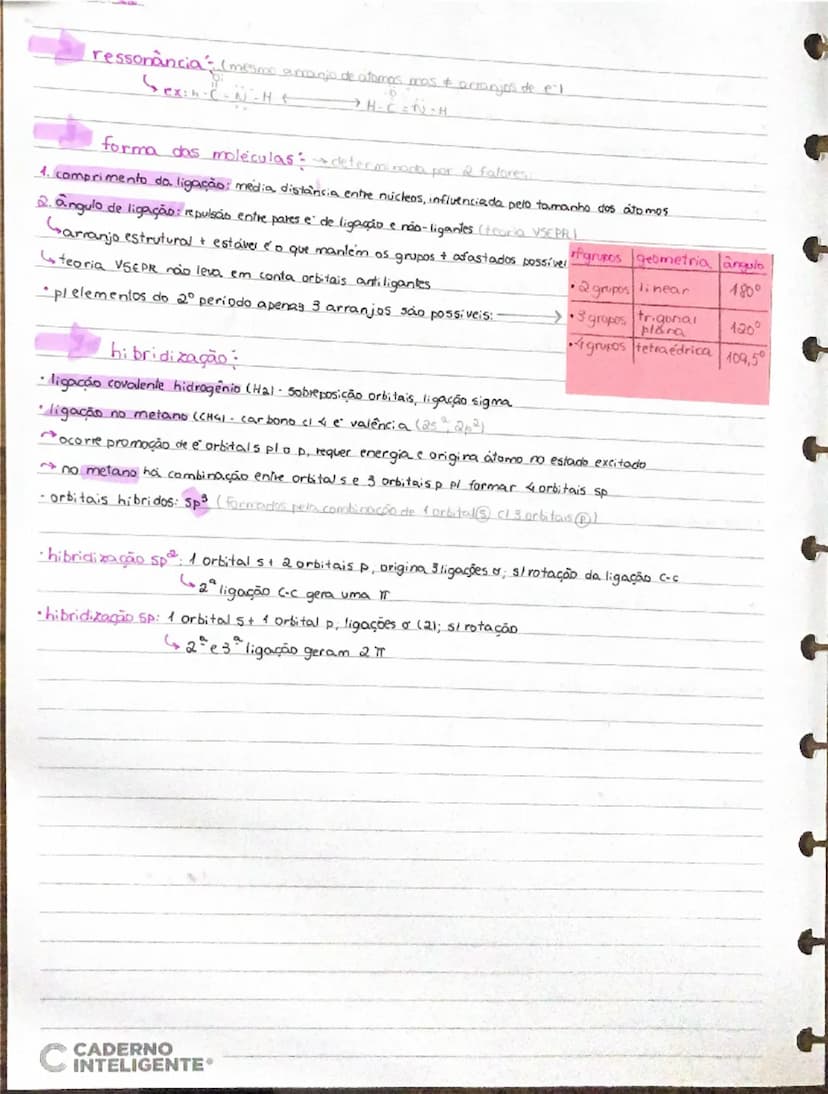 ressonância: (mesmo arranjo de átomos mas ≠ arranjos de e-)
↳ ex: H-C-N-H ⟷ H-C=N-H
forma das moléculas: → determinada por 2 fatores:
1. comprimento da ligação: média distância entre núcleos, influenciada pelo tamanho dos átomos
2. ângulo de ligação: repulsão entre pares e- de ligação e não-ligantes (teoria VSEPR)
↳ arranjo estrutural + estável é o que mantém os grupos + afastados possível
↳ teoria VSEPR não leva em conta orbitais antiligantes
• p/ elementos do 2º período apenas 3 arranjos são possíveis: →
nº grupos geometria ângulo
• 2 grupos linear 180º
• 3 grupos trigonal plana 120º
• 4 grupos tetraédrica 109,5º
hibridização:
• ligação covalente hidrogênio (H2) - sobreposição orbitais, ligação sigma
• ligação no metano (CH4) - carbono c/ 4 e- valência (2s², 2p²)
→ ocorre promoção de e- orbital s p/ o p, requer energia e origina átomo no estado excitado
→ no metano há combinação entre orbital s e 3 orbitais p p/ formar 4 orbitais sp
- orbitais híbridos: sp³ (formados pela combinação de 1 orbital (s) c/ 3 orbitais (p))
• hibridização sp²: 1 orbital s + 2 orbitais p, origina 3 ligações σ; s/ rotação da ligação C-C
↳ 2ª ligação C-C gera uma π
• hibridização sp: 1 orbital s + 1 orbital p, ligações σ (2); s/ rotação
↳ 2ª e 3ª ligação geram 2 π
CADERNO
INTELIGENTE®